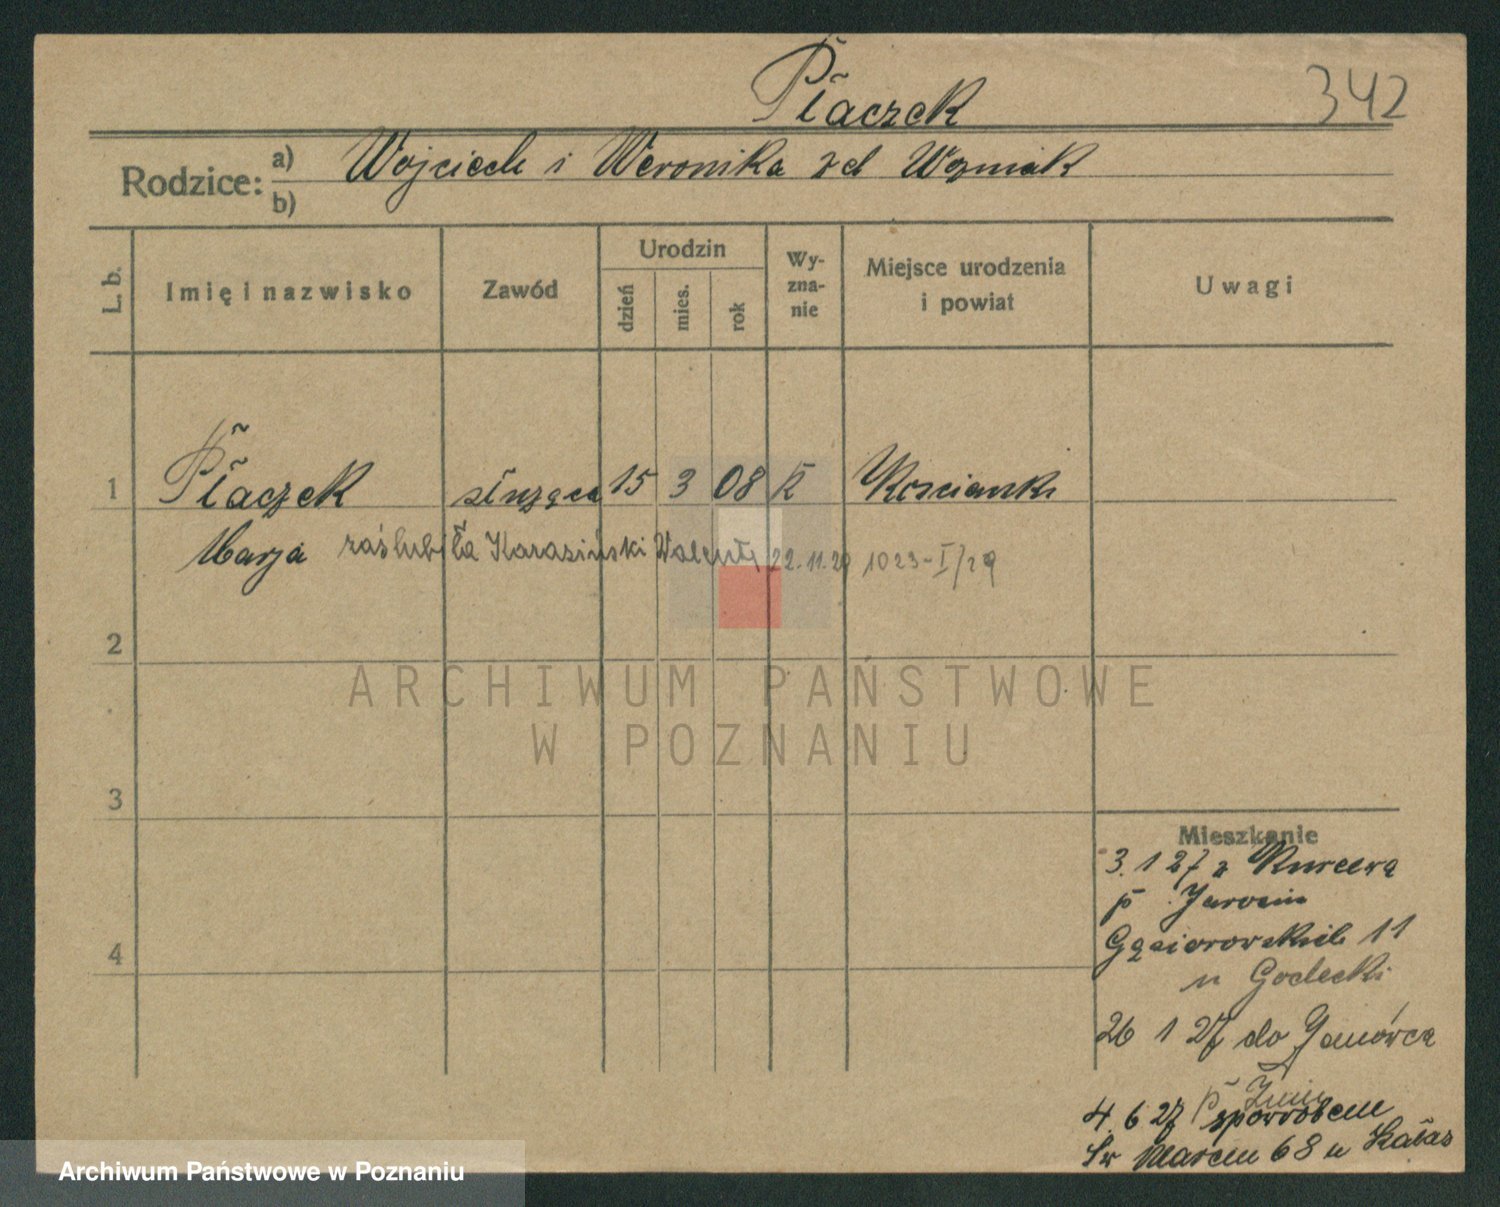 Płaczek 342
Rodzice: a) Wojciech i Weronika zd Wozniak
b)
L. b. Imię i nazwisko Zawód Urodzin dzień mies. rok Wy-zna-nie Miejsce urodzenia i powiat Uwagi
1 Płaczek służąca 15 3 08 K Kościanki
Marja zaślubiła Karasiński Walenty 22.11.29 1023-I/29
2
ARCHIWUM PAŃSTWOWE
W POZNANIU
3
Mieszkanie
3. 1 27 z
p Jarocin
Gąsiorowskich 11
u Godecki
4
26 1 27 do Janówca
p Żnin
4. 6 27 spowrotem
Św Marcin 68 u Kałas
Archiwum Państwowe w Poznaniu